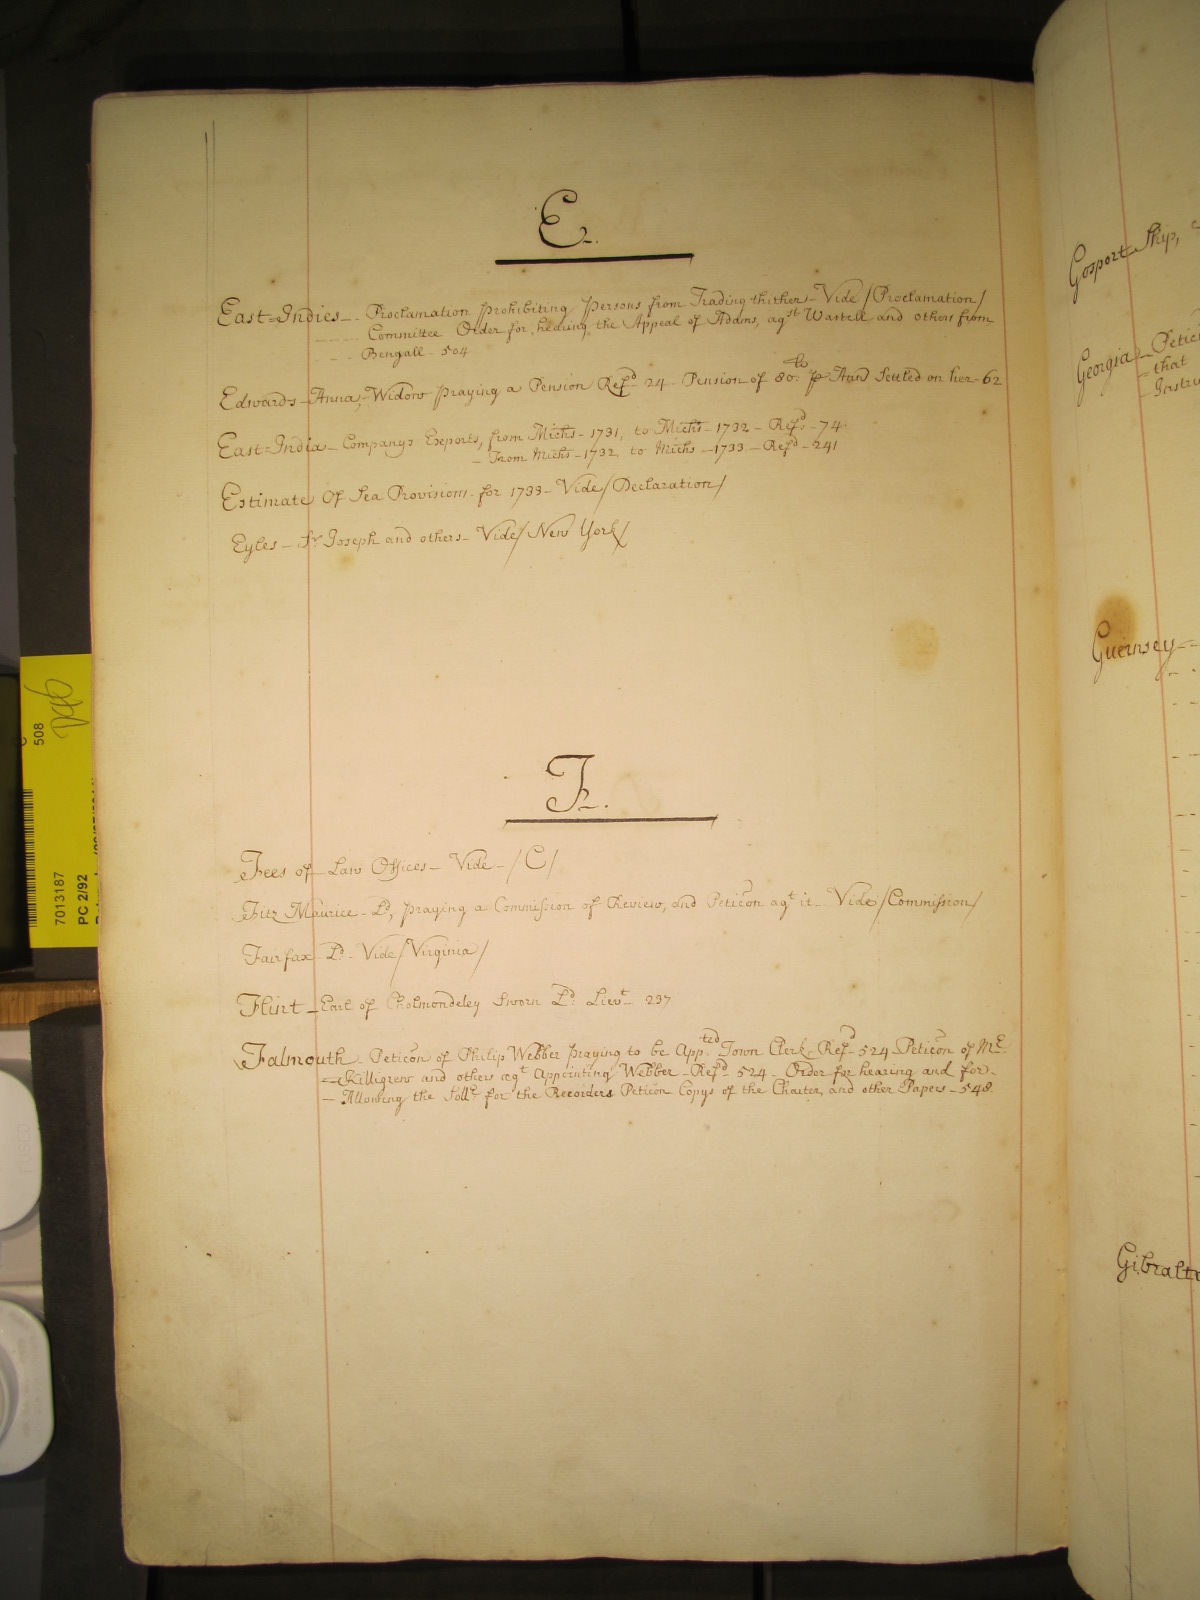 E.
East=Indies - Proclamation prohibiting persons from Trading thither - Vide /Proclamation/
Committee Order for hearing the Appeal of Adams, agst Wastell and others from
Bengall - 504
Edwards - Anna, Widow praying a Pension Refd 24 - Pension of 80lb p Ann Settled on her - 62
East=India - Companys Exports, from Michs - 1731, to Michs - 1732 - Refd - 74
- From Michs - 1732, to Michs - 1733 - Refd - 241
Estimate Of Sea Provisions - for 1733 - Vide /Declaration/
Eyles - Sr Joseph and others - Vide /New York/
F.
Fees of Law Offices - Vide - /C/
Fitz Maurice - Ld, praying a Commission of Review, and Peticon agt it - Vide /Commission/
Fairfax - Ld - Vide /Virginia/
Flint - Earl of Cholmondeley Sworn Ld Lievt - 237
Falmouth - Peticon of Philip Webber praying to be Appted Town Clerk - Refd - 524 - Peticon of Mr
- Killigrew and others agt Appointing Webber - Refd 524 - Order for hearing and for
- Allowing the Sollr for the Recorders Peticon Copys of the Charter, and other Papers - 548
Gosport Ship,
Georgia - Petic
- that
- Instru
Guernsey -
Gibralta
508
7013187
PC 2/92